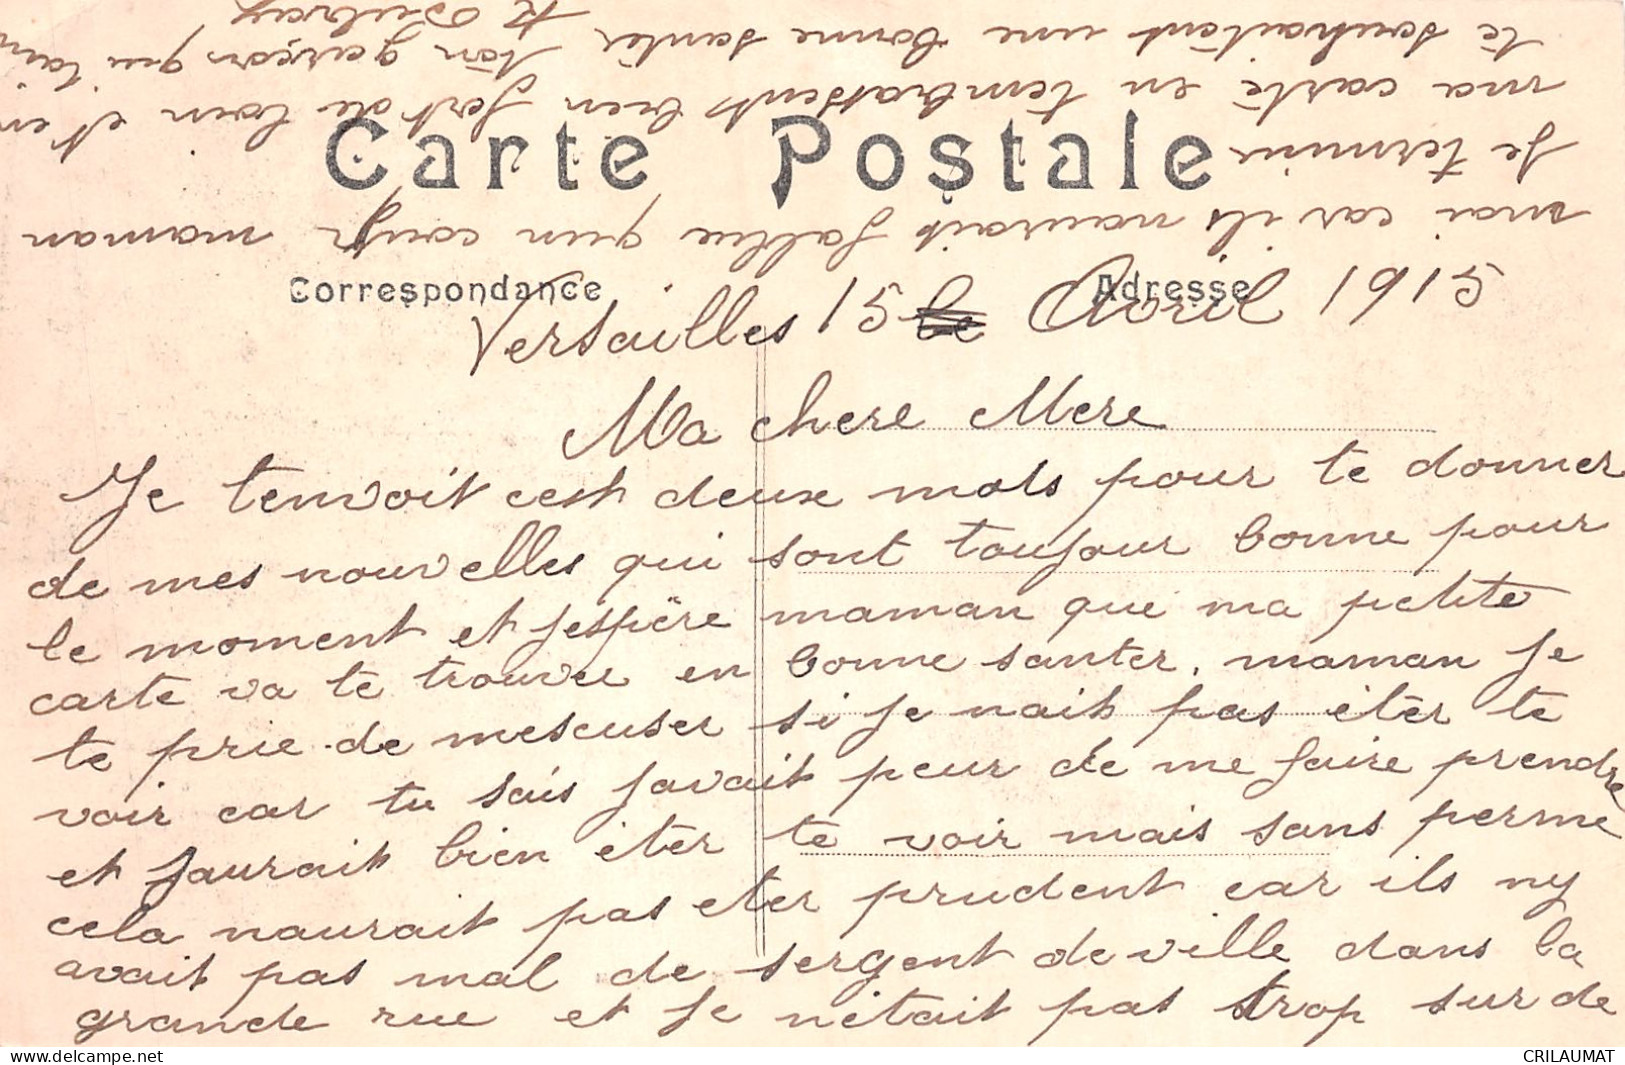 Carte Postale
Correspondance
Adresse
Versailles 15 le Avril 1915
Ma chere Mere
Je tenvoit cest deux mots pour te donner
de mes nouvelles qui sont toujour bonne pour
le moment et jespère maman que ma petite
carte va te trouver en bonne santer. maman je
te prie de mescuser si je nait pas étér te
voir car tu sais javait peur de me faire prendre
et jaurait bien étér te voir mais sans perme
cela naurait pas eter prudent car ils ny
avait pas mal de sergent de ville dans la
grande rue et je nétait pas trop sur de
moi car ils naurait fallu qun coup maman
Je termine
ma carte en tembrassent bien fort de loin et en
te souhaitant une bonne santér ton garçon qui taim
CRILAUMAT